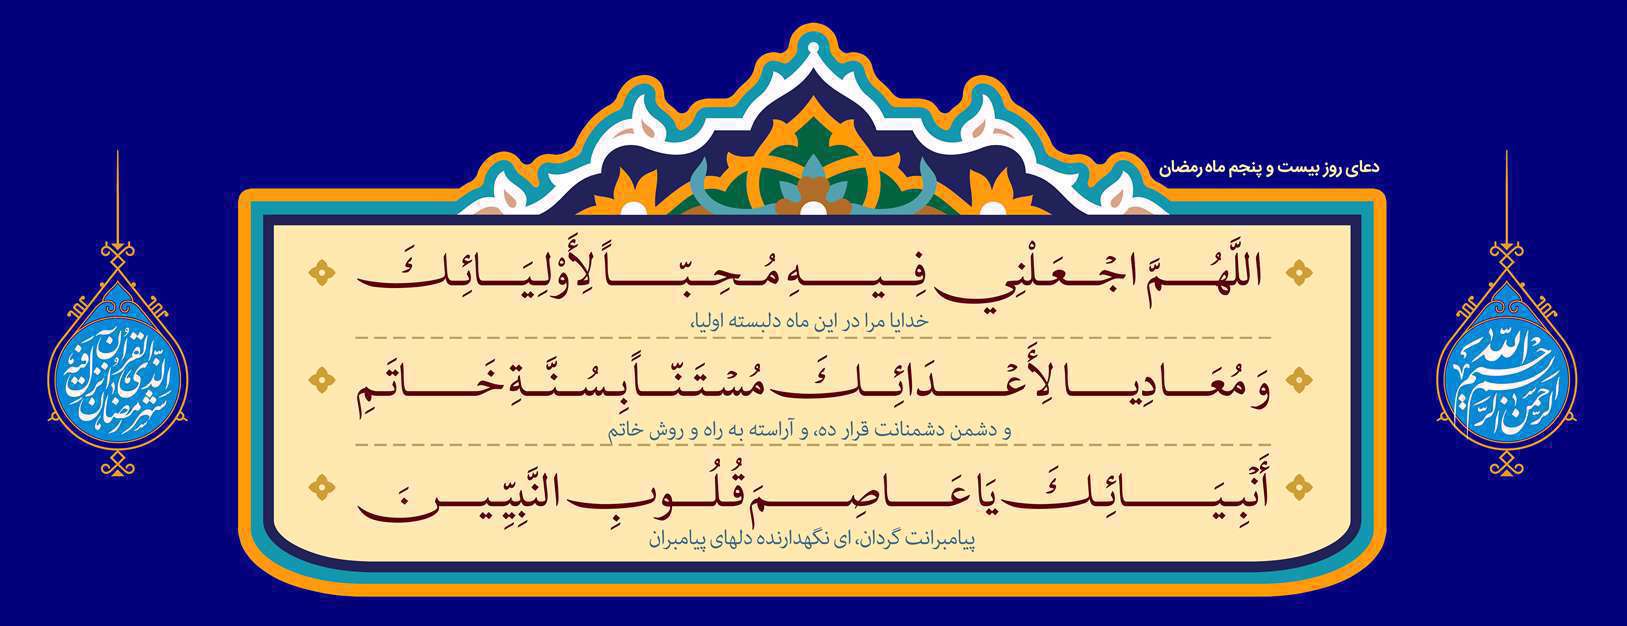 دعای روز بیست و پنجم ماه رمضان
اللَّهُمَّ اجْعَلْنِي فِيهِ مُحِبّاً لِأَوْلِيَائِكَ
خدایا مرا در این ماه دلبسته اولیا،
وَ مُعَادِيا لِأَعْدَائِكَ مُسْتَنّاً بِسُنَّةِ خَاتَمِ
و دشمن دشمنانت قرار ده، و آراسته به راه و روش خاتم
أَنْبِيَائِكَ يَا عَاصِمَ قُلُوبِ النَّبِيِّينَ
پیامبرانت گردان، ای نگهدارنده دلهای پیامبران
الله الرحمن الرحیم
شهر رمضان الذی انزل فیه القرآن